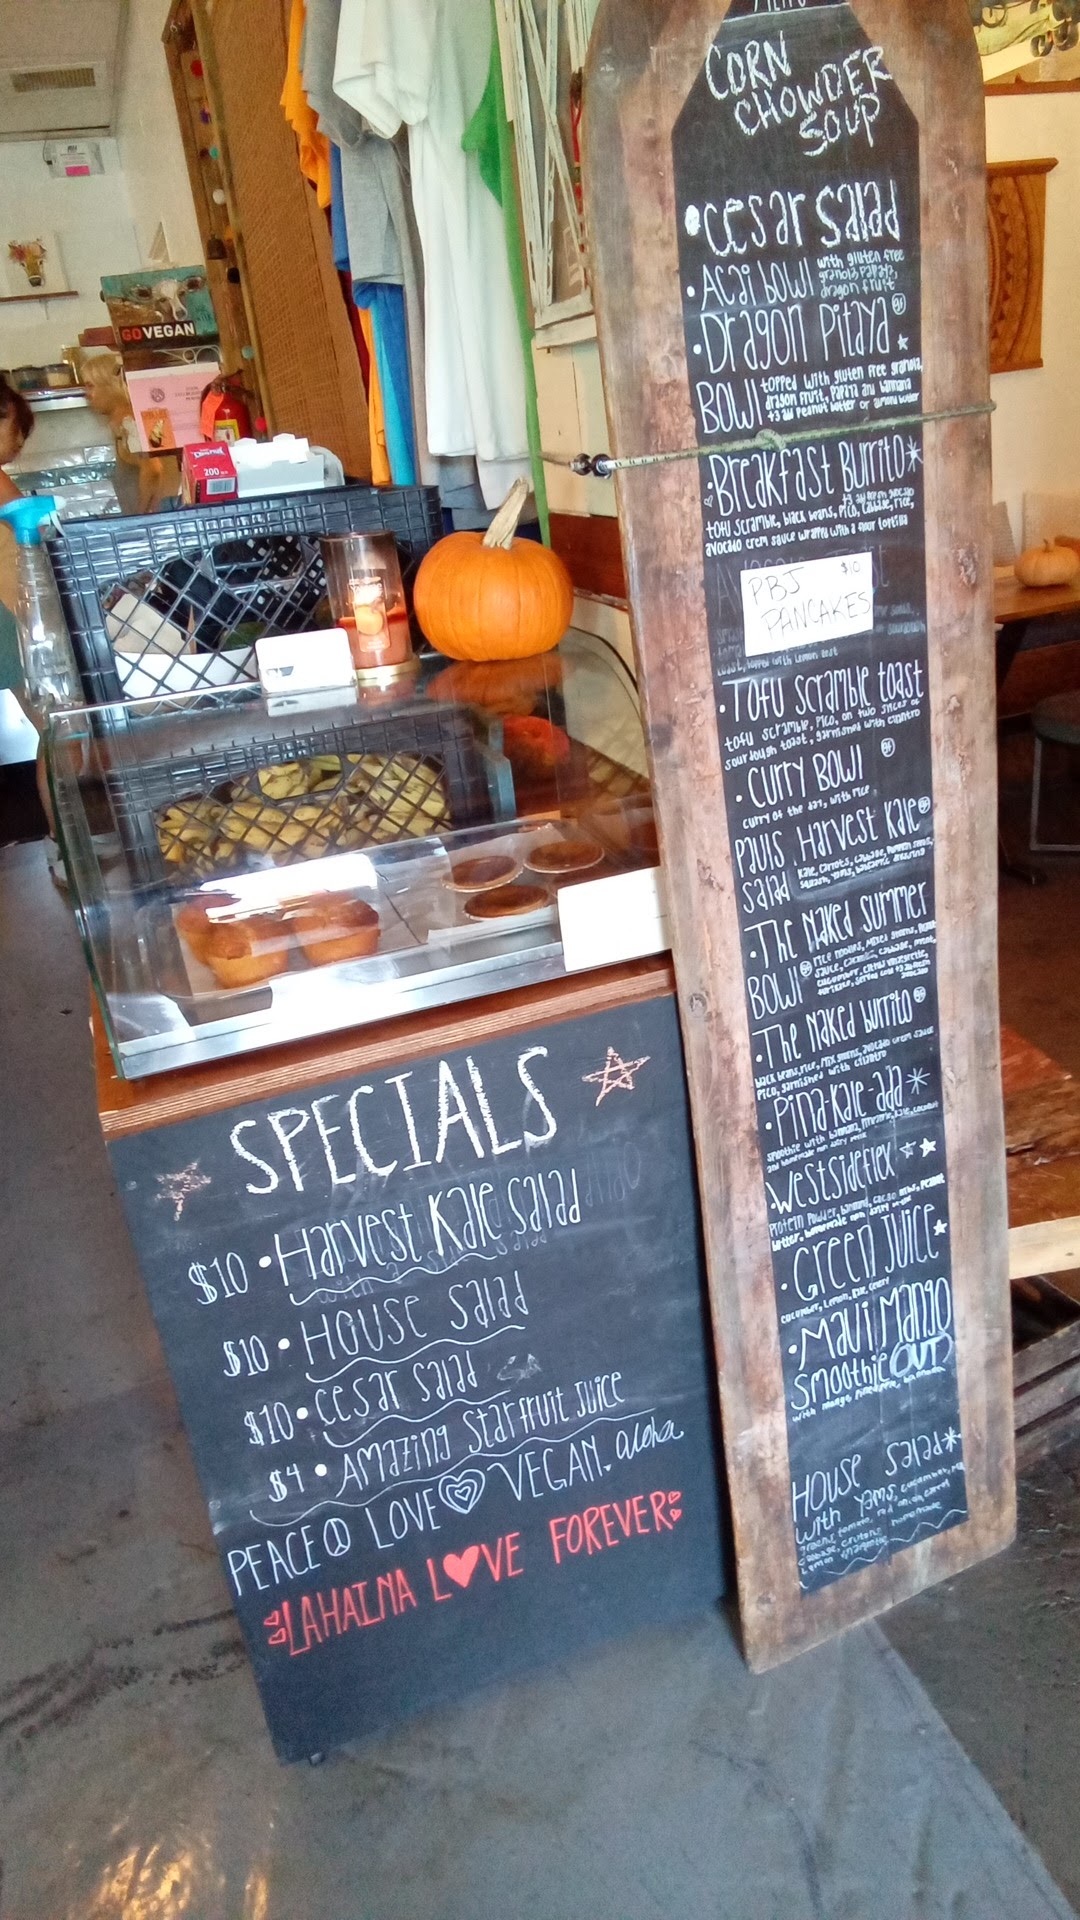 MENU
CORN
CHOWDER
SOUP
• Cesar Salad
• Acai Bowl with gluten free
granola, papaya,
dragon fruit gf
• Dragon Pitaya
Bowl topped with gluten free granola,
dragon fruit, papaya and bannana
+3 add peanut butter or almond butter
• Breakfast Burrito
tofu scramble, black beans, pico, cabbage, rice,
avocado crem sauce wrapped with a flour tortilla
PBJ $10
PANCAKES
toast, topped with lemon zest
• Tofu scramble toast
tofu scramble, pico, on two slices of
sourdough toast, garnished with cilantro
• Curry Bowl gf
curry of the day, with rice
Pauls Harvest Kale gf
Salad kale, carrots, cabbage, pumpkin seeds,
squash, yams, balsamic dressing
• The Naked Summer
Bowl gf rice noodles, mixed greens, peanut
sauce, carrots, cabbage, mint,
cucumber, citrus vinaigrette,
avocado
• The Naked burrito gf
black beans, rice, mix greens, avocado crem sauce
pico, garnished with cilantro
• Pina-Kale-ada
smoothie with bannana, pineapple, kale, coconut
and homemade non dairy milk
• Westsideflex
protein powder, bannana, cacao nibs, peanut
butter, homemade non dairy milk
• Green Juice
cucumber, lemon, kale, celery
• Maui Mango
Smoothie (OUT)
with mango, pineapple, bannana
House Salad
with yams, cucumber,
greens, tomato, red onion, carrot
cabbage, crutons, homemade
lemon vinaigrette
GO VEGAN
200
SPECIALS
$10 • Harvest Kale Salad
$10 • House Salad
$10 • Cesar Salad
$4 • Amazing Starfruit Juice
PEACE LOVE VEGAN. aloha
LAHAINA LOVE FOREVER